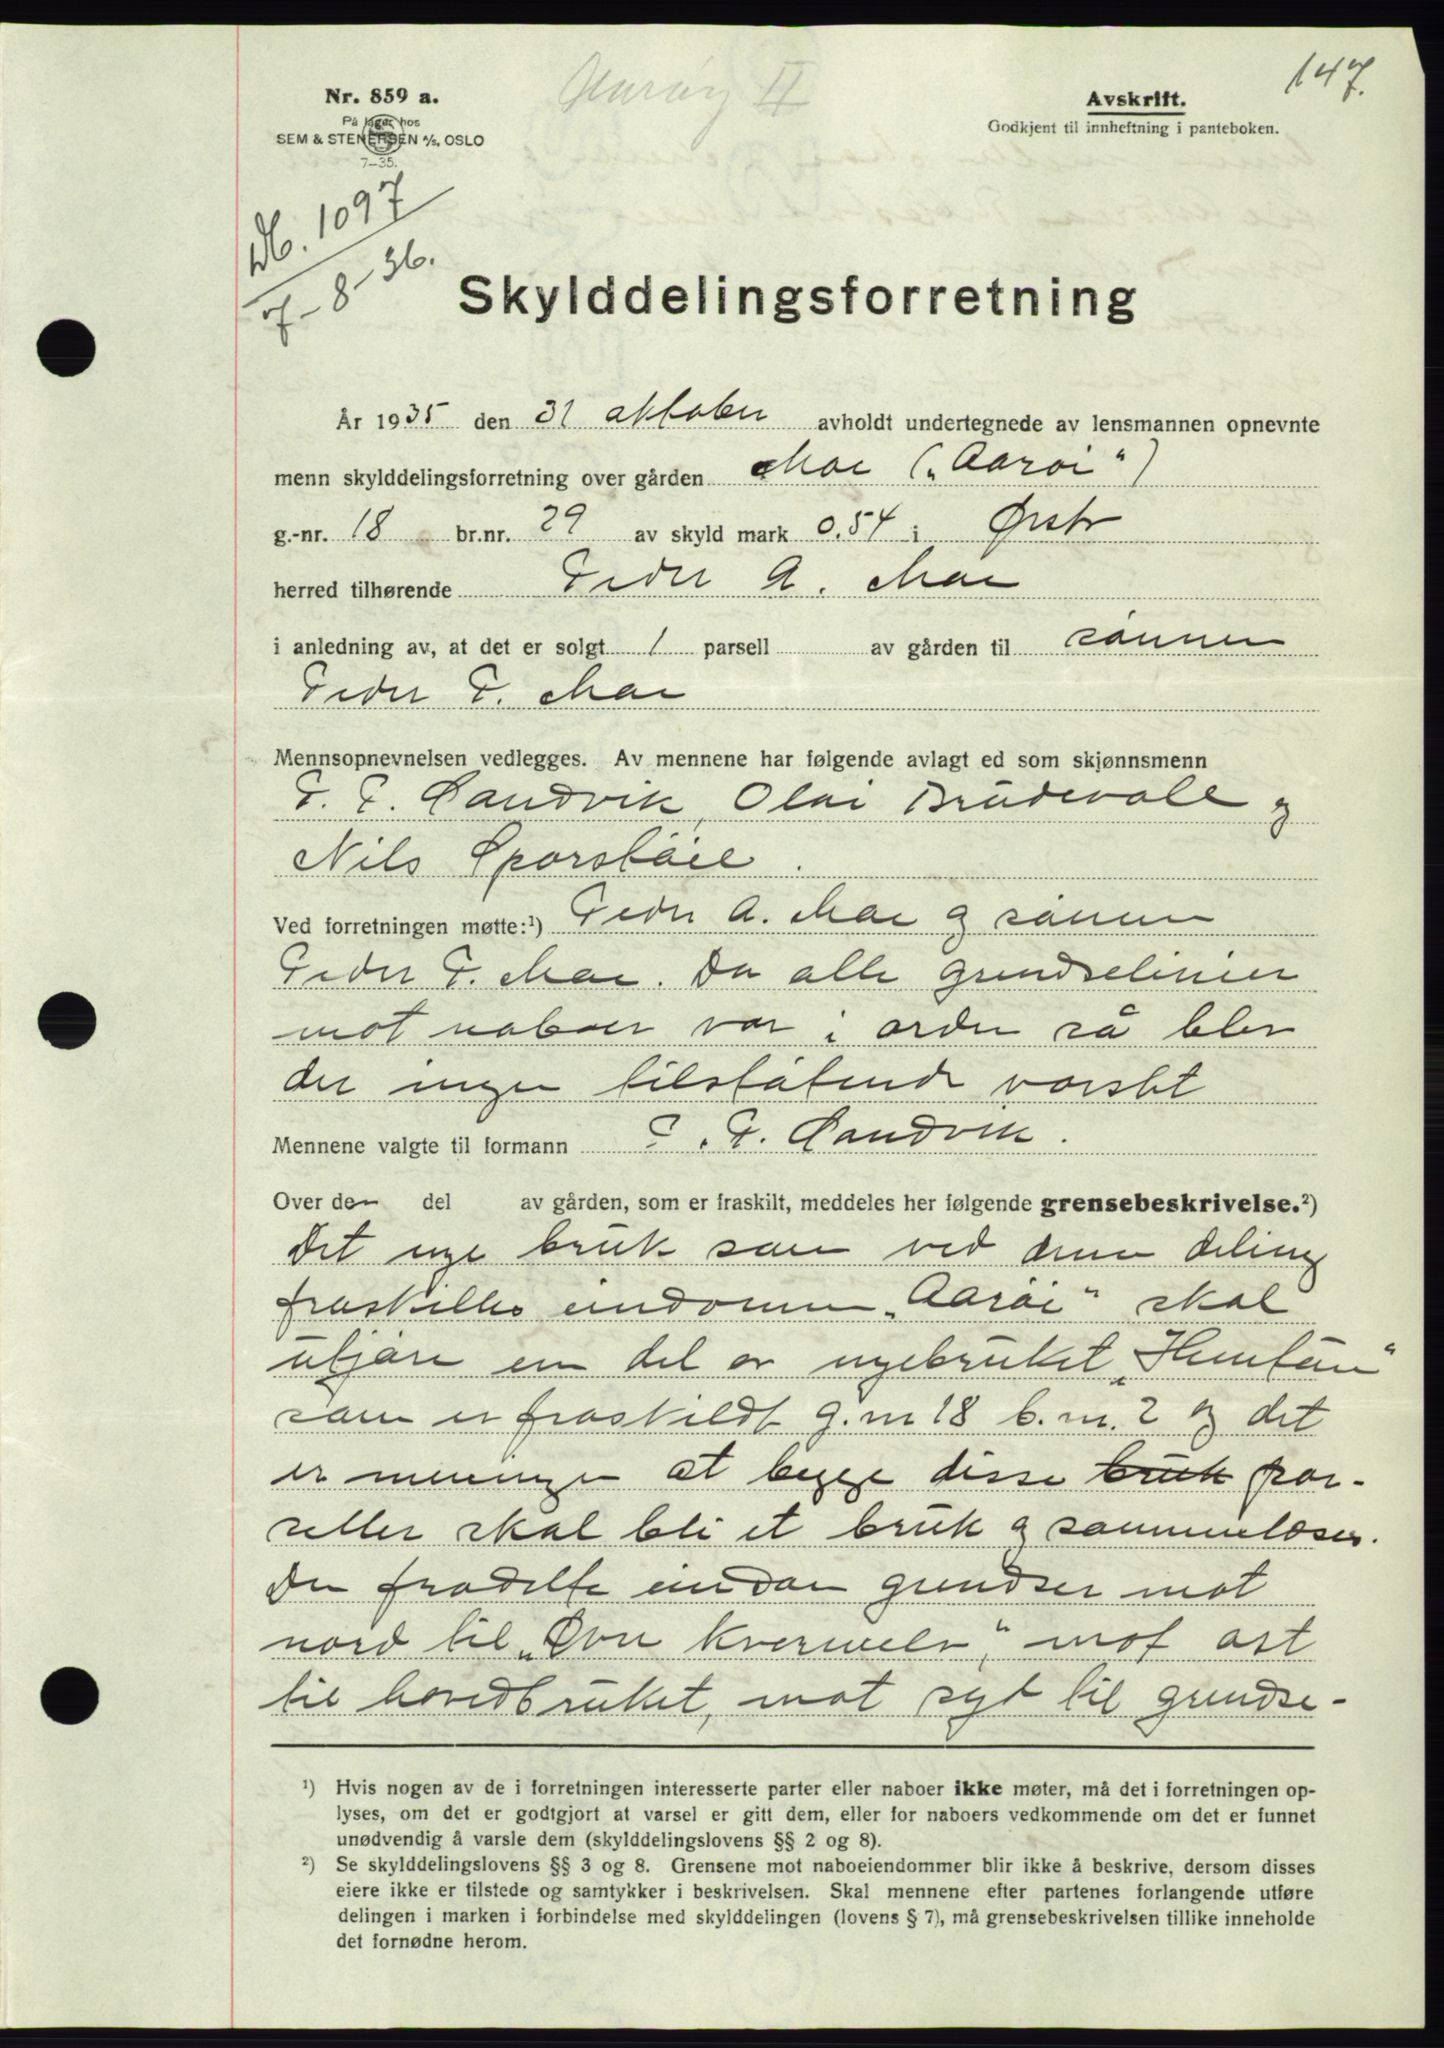 147.
Nr. 859 a.
På lager hos
SEM & STENERSEN A/S, OSLO
7—35.
Aarøy II
Avskrift.
Godkjent til innheftning i panteboken.
Db. 1097
7-8-36.
Skylddelingsforretning
År 1935 den 31 oktober avholdt undertegnede av lensmannen opnevnte
menn skylddelingsforretning over gården Moe („Aarøi")
g.-nr. 18 br.nr. 29 av skyld mark 0,54 i Ørsta
herred tilhørende Peder A. Moe
i anledning av, at det er solgt 1 parsell av gården til sønnen
Peder P. Moe
Mennsopnevnelsen vedlegges. Av mennene har følgende avlagt ed som skjønnsmenn
P. P. Sandvik, Olai Brudevoll og
Nils Sporstøil.
Ved forretningen møtte:¹) Peder A. Moe og sønnen
Peder P. Moe. Da alle grendselinier
mot naboer var i orden så blev
der ingen tilstøtende varslet
Mennene valgte til formann P. P. Sandvik.
Over den del av gården, som er fraskilt, meddeles her følgende grensebeskrivelse.²)
Det nye bruk som ved denne deling
fraskilles eiendommen „Aarøi" skal
utjøre en del av nyebruket „Hemtun"
som er fraskildt g.nr 18 b.nr. 2 og det
er meningen at begge disse bruk par-
seller skal bli et bruk og sammenløses.
Den fradelte eiendom grendser mot
nord til „Øvre Kvernelv," mot øst
til hovedbruket, mot syd til grendse-
¹) Hvis nogen av de i forretningen interesserte parter eller naboer ikke møter, må det i forretningen op-
lyses, om det er godtgjort at varsel er gitt dem, eller for naboers vedkommende om det er funnet
unødvendig å varsle dem (skylddelingslovens §§ 2 og 8).
²) Se skylddelingslovens §§ 3 og 8. Grensene mot naboeiendommer blir ikke å beskrive, dersom disses
eiere ikke er tilstede og samtykker i beskrivelsen. Skal mennene efter partenes forlangende utføre
delingen i marken i forbindelse med skylddelingen (lovens § 7), må grensebeskrivelsen tillike inneholde
det fornødne herom.